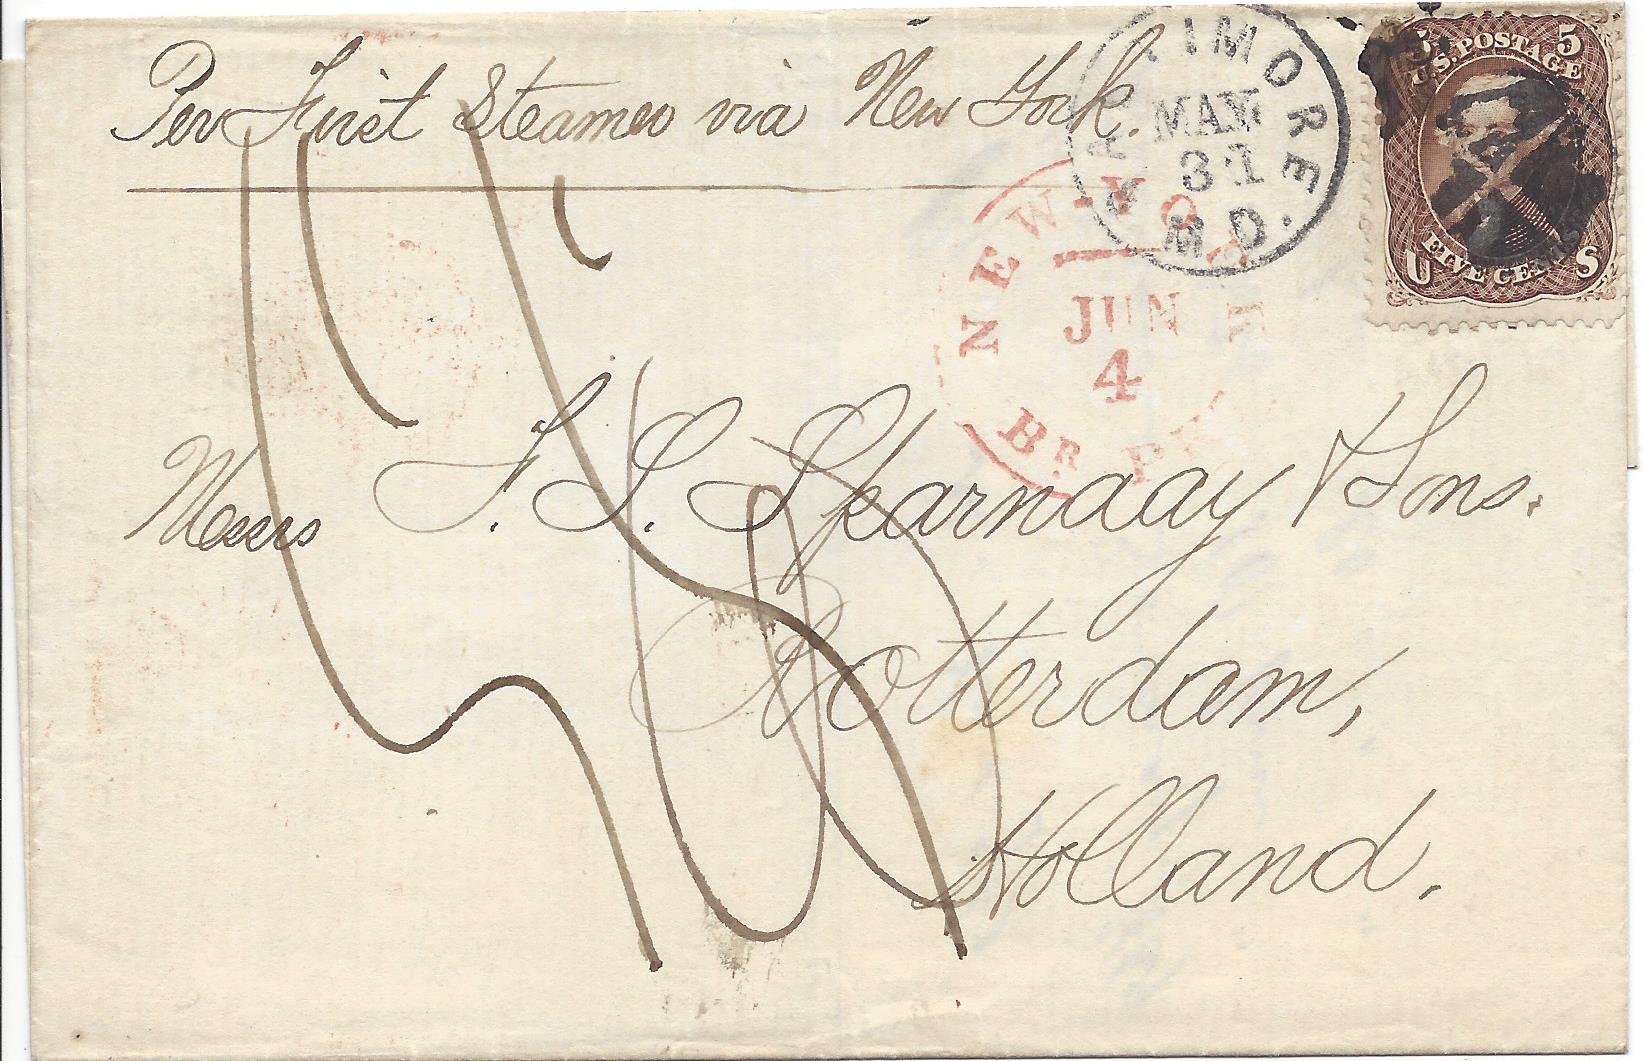 Per First Steamer via New York.
BALTIMORE
MAY
31
MD.
5 5
U.S. POSTAGE
FIVE CENTS
U S
NEW YORK
JUN
4
BR. PKT
Messrs J. S. Skarnaay & Sons.
Rotterdam,
Holland.